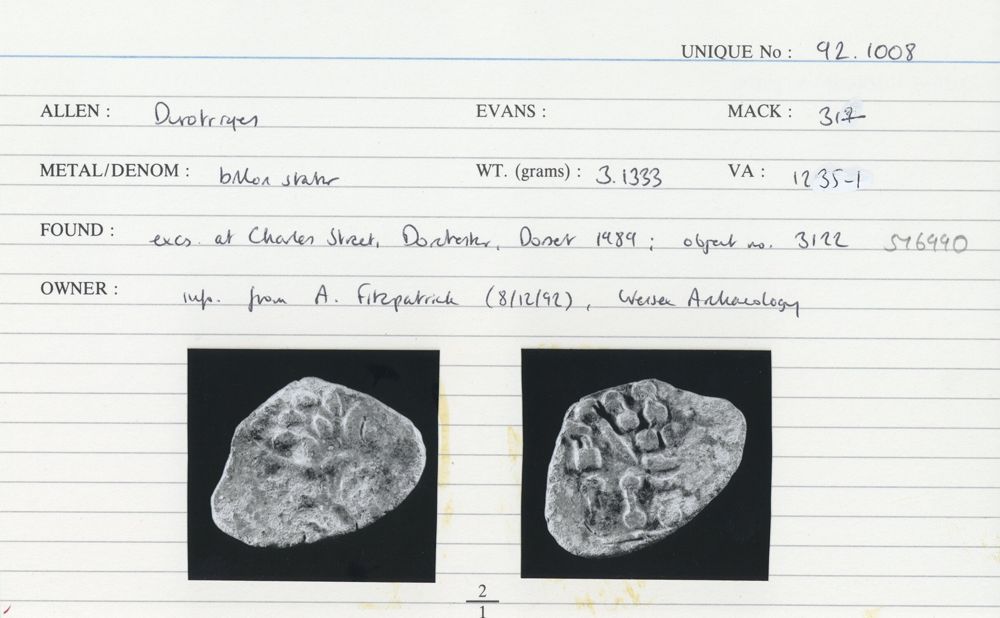 UNIQUE No : 92.1008
ALLEN : Durotriges EVANS : MACK : 317
METAL/DENOM : billon stater WT. (grams) : 3.1333 VA : 1235-1
FOUND : excs. at Charles Street, Dorchester, Dorset 1989 ; object no. 3122 576990
OWNER : info. from A. Fitzpatrick (8/12/92), Wessex Archaeology
2
1